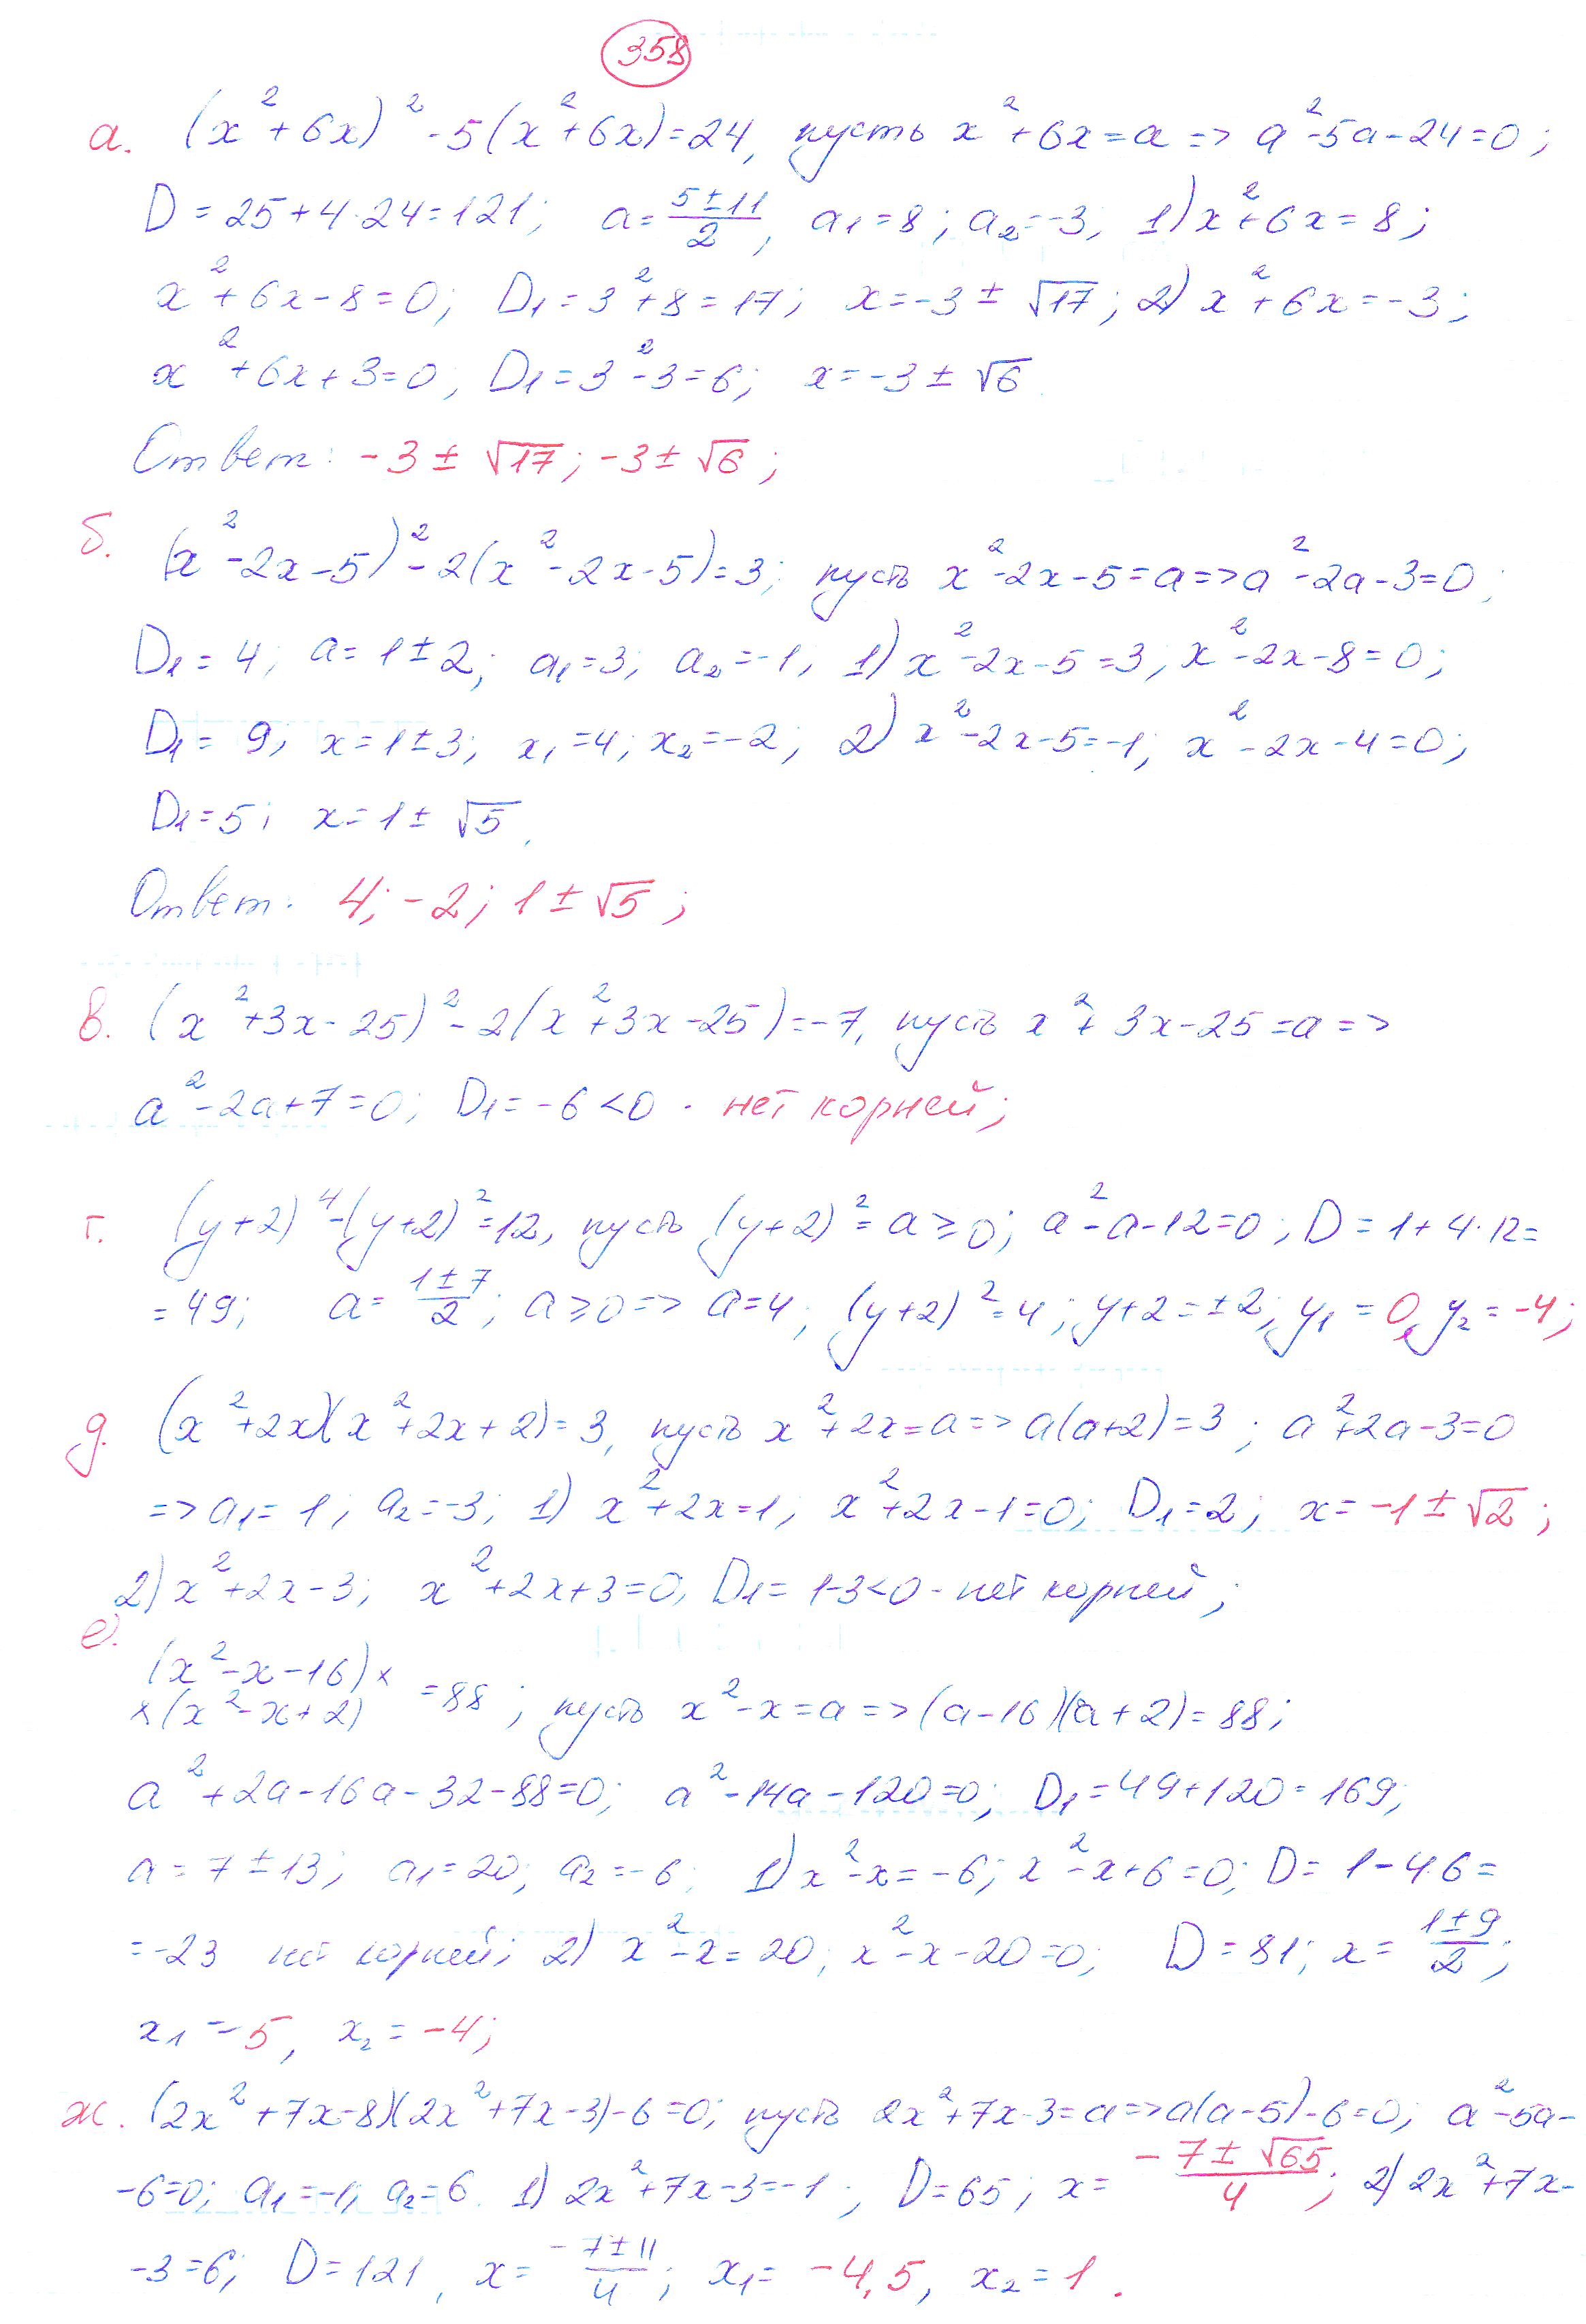 358
а. (x²+6x)²-5(x²+6x)=24, пусть x²+6x=a => a²-5a-24=0;
D=25+4·24=121; a=(5±11)/2, a₁=8; a₂=-3, 1) x²+6x=8;
x²+6x-8=0; D₁=3²+8=17; x=-3±√17; 2) x²+6x=-3;
x²+6x+3=0, D₁=3²-3=6; x=-3±√6
Ответ: -3±√17; -3±√6;
б. (x²-2x-5)²-2(x²-2x-5)=3; пусть x²-2x-5=a=>a²-2a-3=0;
D₁=4; a=1±2; a₁=3; a₂=-1, 1) x²-2x-5=3, x²-2x-8=0;
D₁=9; x=1±3; x₁=4; x₂=-2; 2) x²-2x-5=-1; x²-2x-4=0;
D₁=5; x=1±√5,
Ответ: 4; -2; 1±√5;
в. (x²+3x-25)²-2(x²+3x-25)=-7, пусть x²+3x-25=a=>
a²-2a+7=0; D₁=-6<0 - нет корней;
г. (y+2)⁴-(y+2)²=12, пусть (y+2)²=a≥0; a²-a-12=0; D=1+4·12=
=49; a=(1±7)/2; a≥0=>a=4; (y+2)²=4; y+2=±2; y₁=0, y₂=-4;
д. (x²+2x)(x²+2x+2)=3, пусть x²+2x=a=>a(a+2)=3; a²+2a-3=0
=>a₁=1, a₂=-3; 1) x²+2x=1, x²+2x-1=0; D₁=2; x=-1±√2;
2) x²+2x-3; x²+2x+3=0, D₁=1-3<0 - нет корней;
е.
(x²-x-16)×
×(x²-x+2) =88; пусть x²-x=a=>(a-16)(a+2)=88;
a²+2a-16a-32-88=0; a²-14a-120=0; D₁=49+120=169;
a=7±13; a₁=20; a₂=-6; 1) x²-x=-6; x²-x+6=0; D=1-4·6=
=-23 нет корней; 2) x²-x=20; x²-x-20=0; D=81; x=(1±9)/2;
x₁=5, x₂=-4;
ж. (2x²+7x-8)(2x²+7x-3)-6=0; пусть 2x²+7x-3=a=>a(a-5)-6=0; a²-5a-
-6=0; a₁=-1, a₂=6. 1) 2x²+7x-3=-1; D=65; x=(-7±√65)/4; 2) 2x²+7x-
-3=6; D=121, x=(-7±11)/4; x₁=-4,5, x₂=1.